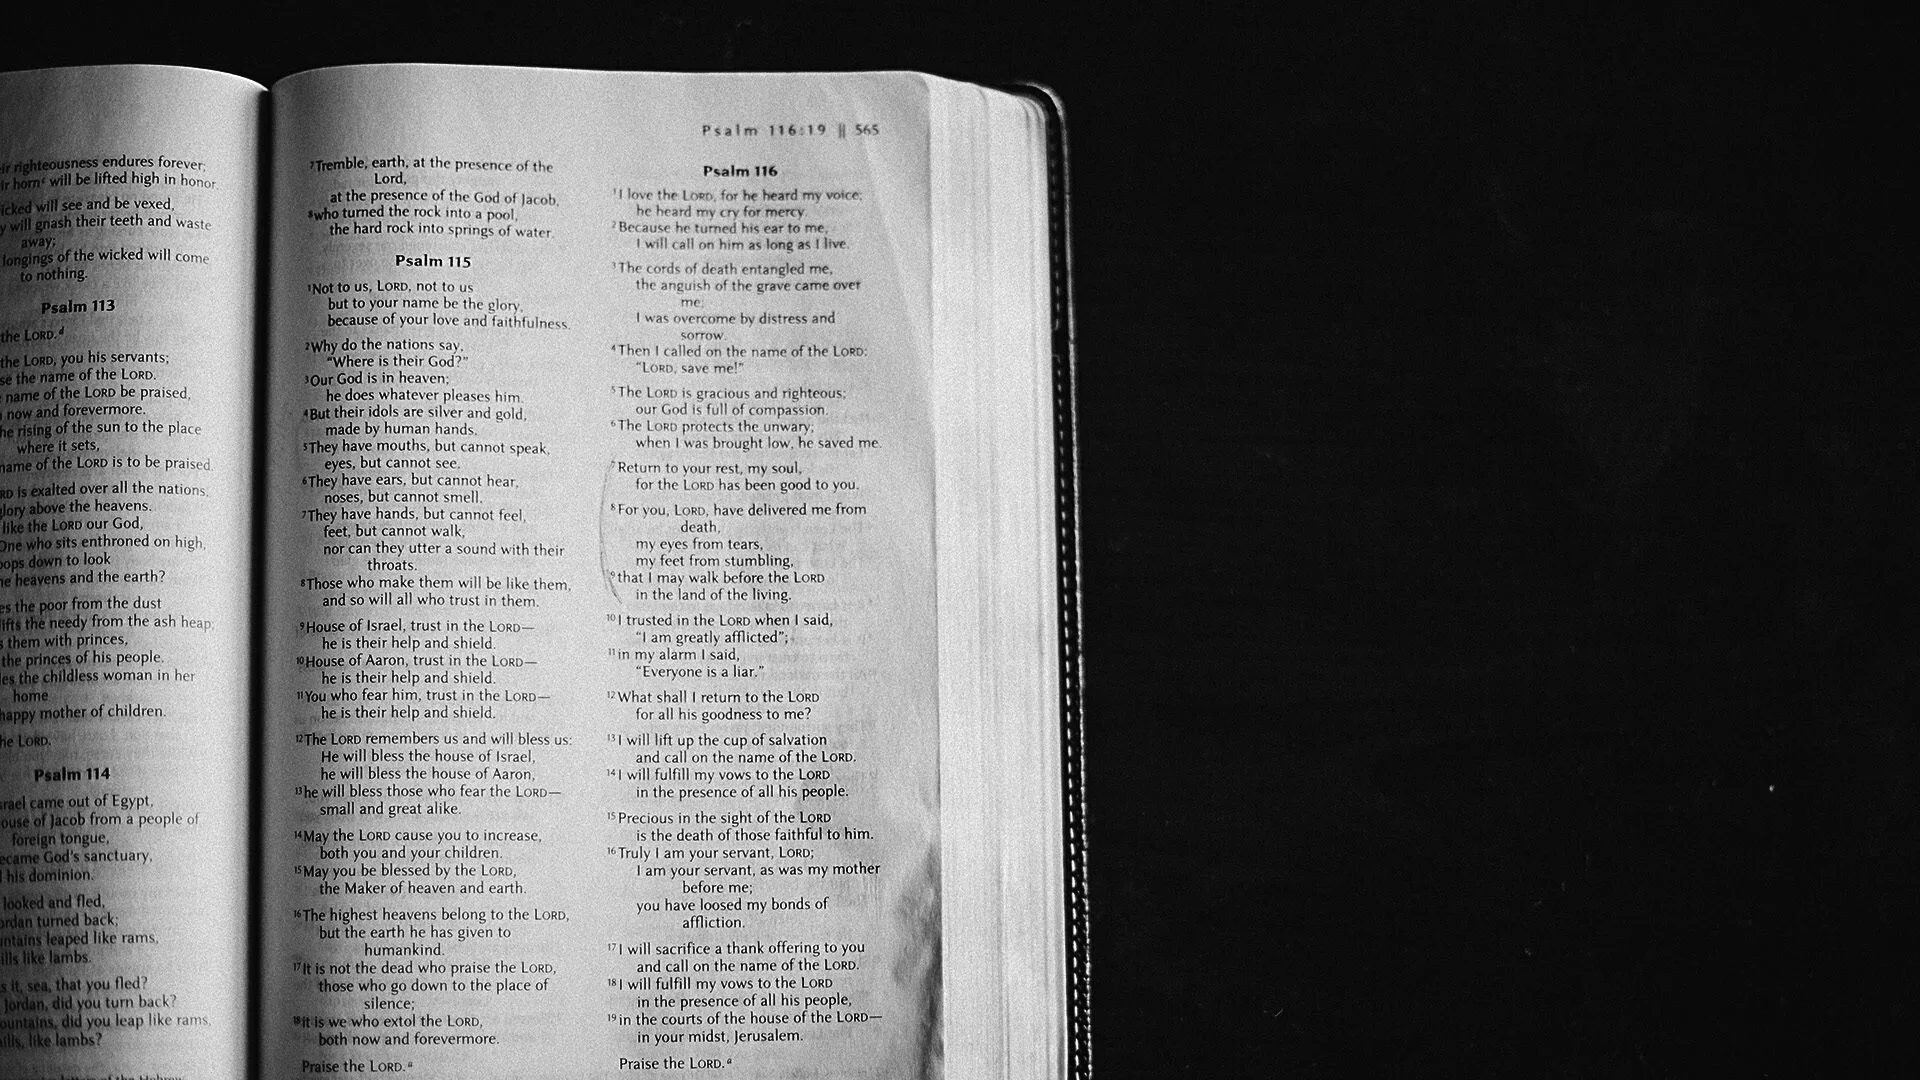 righteousness endures forever;
hornᶜ will be lifted high in honor.
will see and be vexed,
will gnash their teeth and waste
away;
longings of the wicked will come
to nothing.
Psalm 113
the LORD.ᵈ
the LORD, you his servants;
the name of the LORD.
name of the LORD be praised,
now and forevermore.
rising of the sun to the place
where it sets,
name of the LORD is to be praised.
is exalted over all the nations,
glory above the heavens.
like the LORD our God,
One who sits enthroned on high,
down to look
heavens and the earth?
the poor from the dust
lifts the needy from the ash heap;
them with princes,
the princes of his people.
the childless woman in her
home
happy mother of children.
the LORD.
Psalm 114
came out of Egypt,
of Jacob from a people of
foreign tongue,
became God's sanctuary,
his dominion.
looked and fled,
turned back;
leaped like rams,
like lambs.
it, sea, that you fled?
Jordan, did you turn back?
mountains, did you leap like rams,
hills, like lambs?
Psalm 116:19 || 565
⁷Tremble, earth, at the presence of the
Lord,
at the presence of the God of Jacob,
⁸who turned the rock into a pool,
the hard rock into springs of water.
Psalm 115
¹Not to us, LORD, not to us
but to your name be the glory,
because of your love and faithfulness.
²Why do the nations say,
“Where is their God?”
³Our God is in heaven;
he does whatever pleases him.
⁴But their idols are silver and gold,
made by human hands.
⁵They have mouths, but cannot speak,
eyes, but cannot see.
⁶They have ears, but cannot hear,
noses, but cannot smell.
⁷They have hands, but cannot feel,
feet, but cannot walk,
nor can they utter a sound with their
throats.
⁸Those who make them will be like them,
and so will all who trust in them.
⁹House of Israel, trust in the LORD—
he is their help and shield.
¹⁰House of Aaron, trust in the LORD—
he is their help and shield.
¹¹You who fear him, trust in the LORD—
he is their help and shield.
¹²The LORD remembers us and will bless us:
He will bless the house of Israel,
he will bless the house of Aaron,
¹³he will bless those who fear the LORD—
small and great alike.
¹⁴May the LORD cause you to increase,
both you and your children.
¹⁵May you be blessed by the LORD,
the Maker of heaven and earth.
¹⁶The highest heavens belong to the LORD,
but the earth he has given to
humankind.
¹⁷It is not the dead who praise the LORD,
those who go down to the place of
silence;
¹⁸it is we who extol the LORD,
both now and forevermore.
Praise the LORD.ᵃ
Psalm 116
¹I love the LORD, for he heard my voice;
he heard my cry for mercy.
²Because he turned his ear to me,
I will call on him as long as I live.
³The cords of death entangled me,
the anguish of the grave came over
me;
I was overcome by distress and
sorrow.
⁴Then I called on the name of the LORD:
“LORD, save me!”
⁵The LORD is gracious and righteous;
our God is full of compassion.
⁶The LORD protects the unwary;
when I was brought low, he saved me.
⁷Return to your rest, my soul,
for the LORD has been good to you.
⁸For you, LORD, have delivered me from
death,
my eyes from tears,
my feet from stumbling,
⁹that I may walk before the LORD
in the land of the living.
¹⁰I trusted in the LORD when I said,
“I am greatly afflicted”;
¹¹in my alarm I said,
“Everyone is a liar.”
¹²What shall I return to the LORD
for all his goodness to me?
¹³I will lift up the cup of salvation
and call on the name of the LORD.
¹⁴I will fulfill my vows to the LORD
in the presence of all his people.
¹⁵Precious in the sight of the LORD
is the death of those faithful to him.
¹⁶Truly I am your servant, LORD;
I am your servant, as was my mother
before me;
you have loosed my bonds of
affliction.
¹⁷I will sacrifice a thank offering to you
and call on the name of the LORD.
¹⁸I will fulfill my vows to the LORD
in the presence of all his people,
¹⁹in the courts of the house of the LORD—
in your midst, Jerusalem.
Praise the LORD.ᵃ